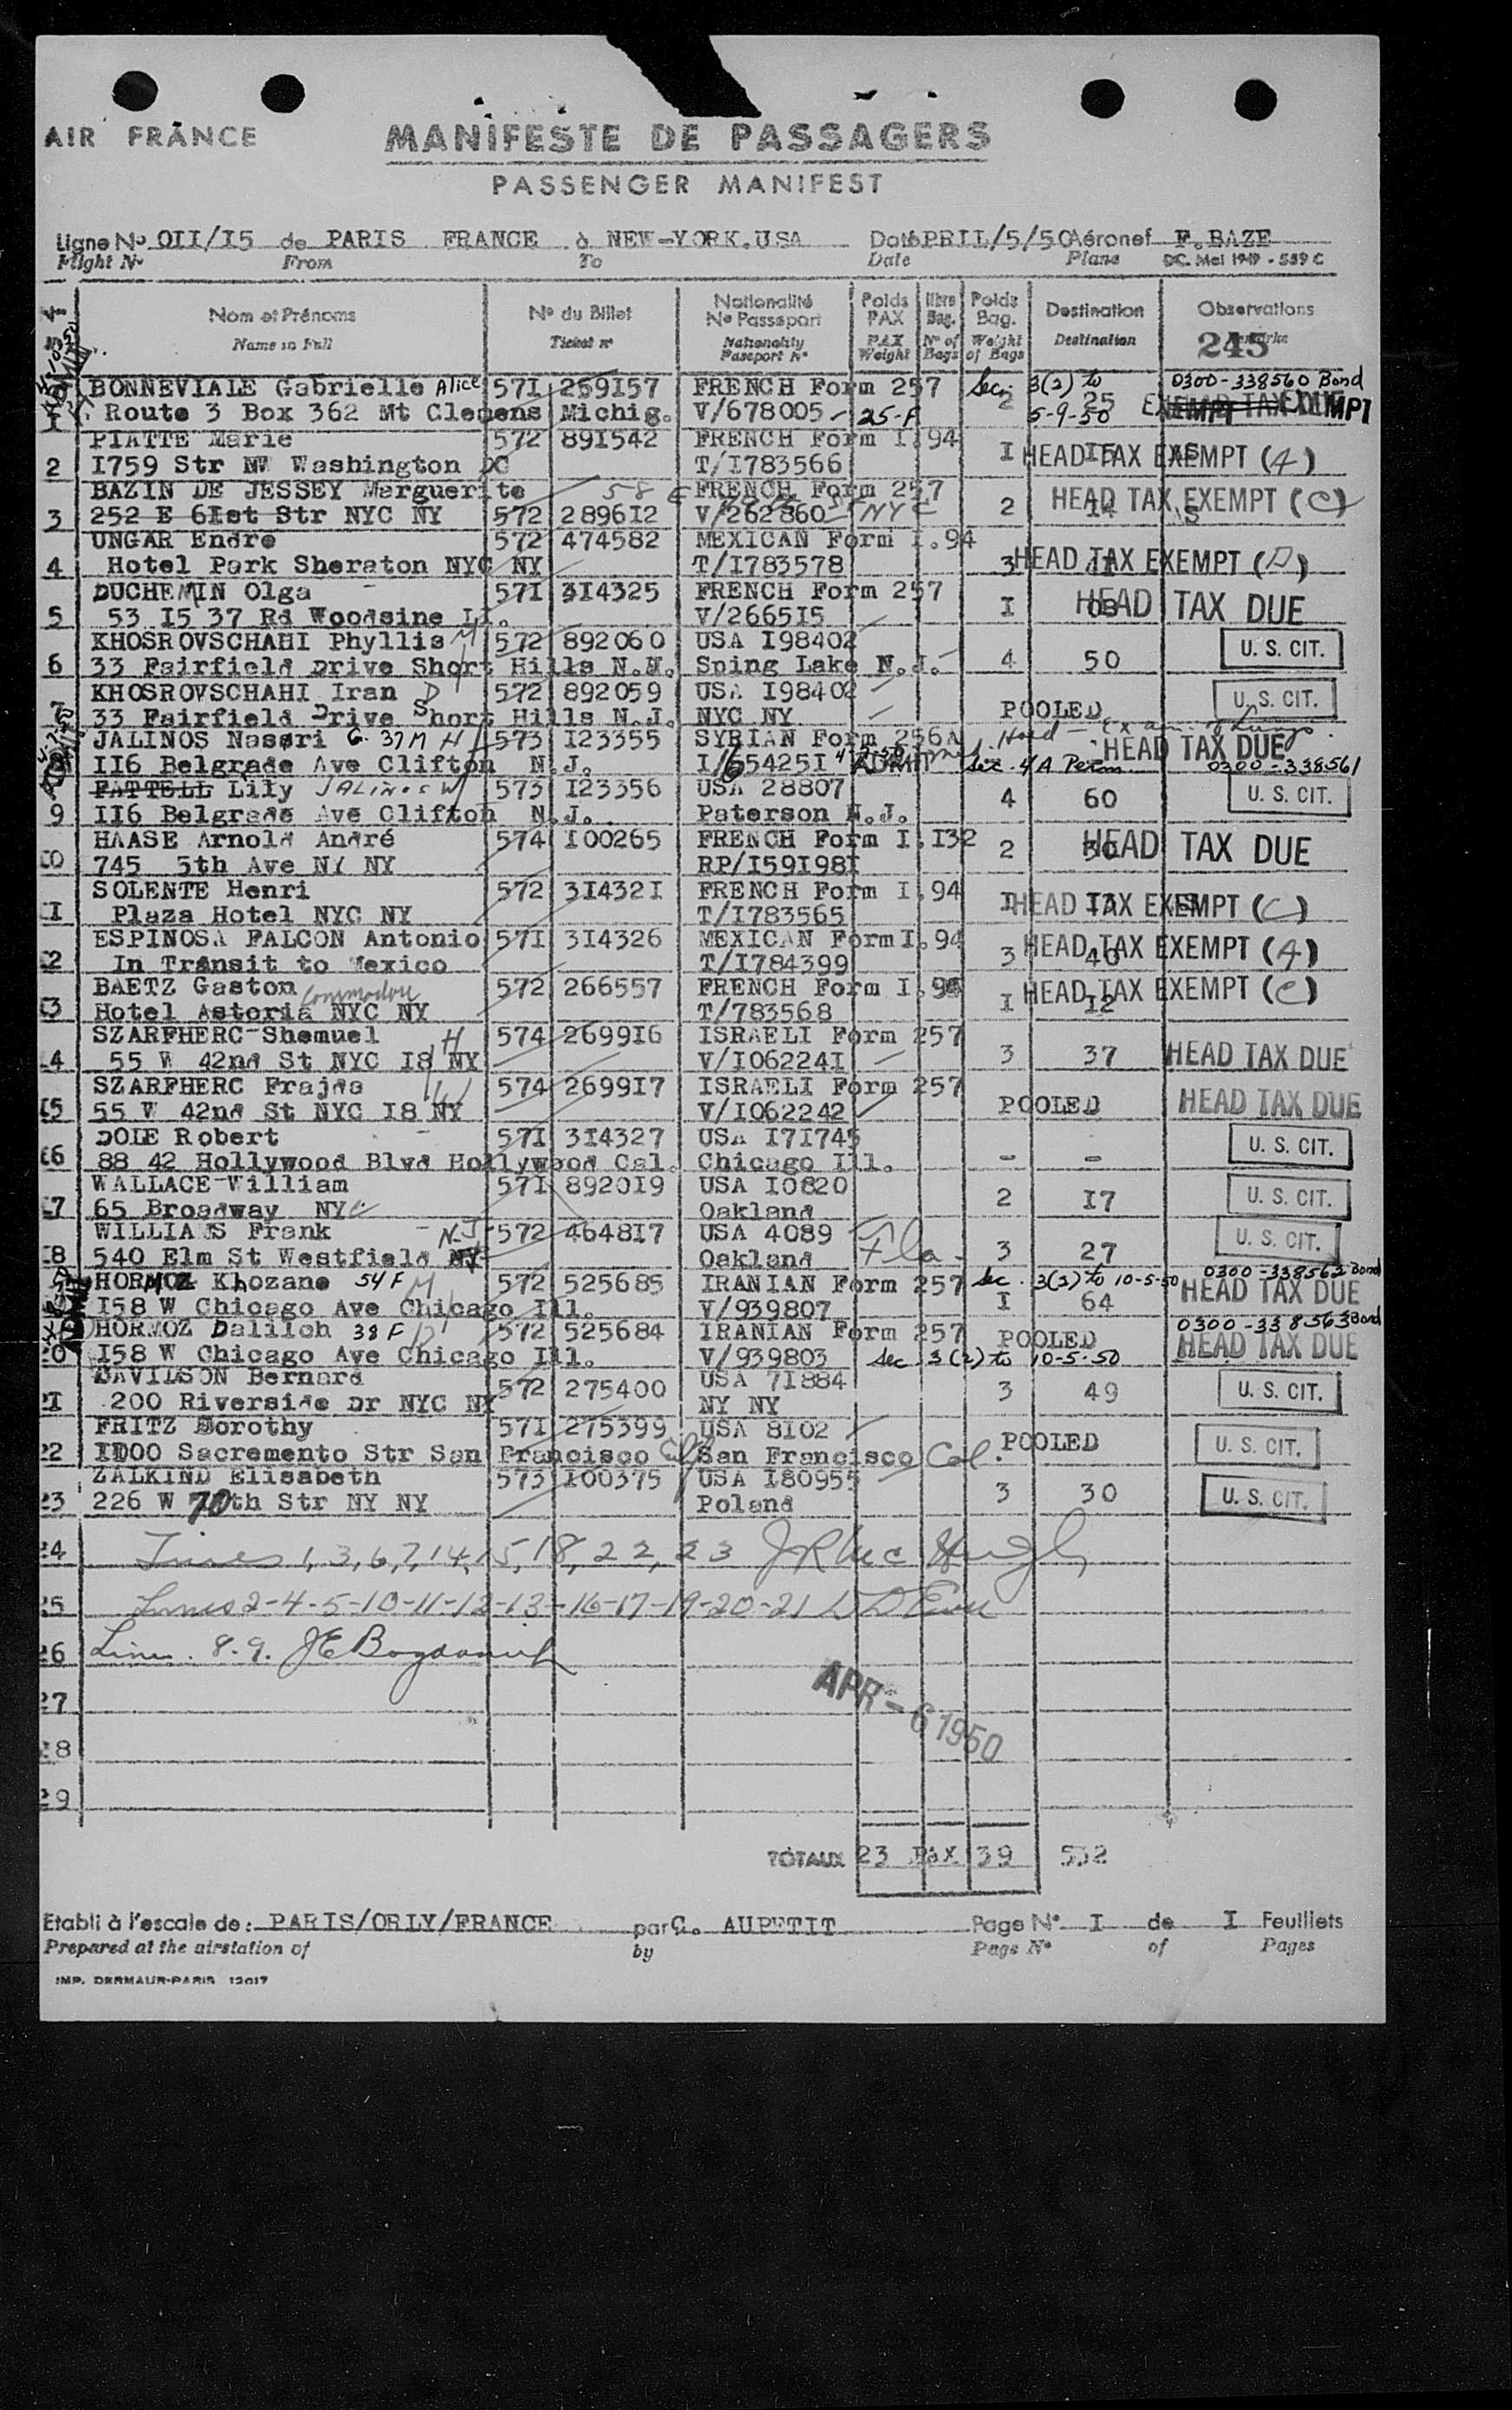 AIR FRANCE
MANIFESTE DE PASSAGERS
PASSENGER MANIFEST
Ligne No OII/I5 de PARIS FRANCE à NEW-YORK.USA Date PRIL/5/50 Aéronef F.BAZE
Flight No From To Date Plane DC. Mel 1949 - 589 C
Nom et Prénoms No du Billet Nationalité No Passeport Poids PAX Nbre Bag. Poids Bag. Destination Observations
Name in Full Ticket no Nationality Passport No PAX Weight No of Bags Weight of Bags Destination 245
BONNEVIALE Gabrielle Alice 57I 259157 FRENCH Form 257 Sec. 3(2) to 0300-338560 Bond
I Route 3 Box 362 Mt Clemens Michig. V/678005 25-F 2 25 5-9-50
PIATTE Marie 572 89I542 FRENCH Form I.94
2 I759 Str NW Washington DC T/I783566 I I5 HEAD TAX EXEMPT (A)
BAZIN DE JESSEY Marguerite 58 E FRENCH Form 257
3 252 E 6Ist Str NYC NY 572 2896I2 V/262860 NYC 2 I4 HEAD TAX EXEMPT (C)
UNGAR Endre 572 474582 MEXICAN Form I.94
4 Hotel Park Sheraton NYC NY T/I783578 3 HEAD TAX EXEMPT (D)
DUCHEMIN Olga 57I 3I4325 FRENCH Form 257
5 53 I5 37 Rd Woodsine LI. V/2665I5 I HEAD TAX DUE
KHOSROVSCHAHI Phyllis M 572 892060 USA I98402
6 33 Fairfield Drive Short Hills N.N. Sping Lake N.J. 4 50 U. S. CIT.
KHOSROVSCHAHI Iran D 572 892059 USA I98402
7 33 Fairfield Drive Short Hills N.J. NYC NY POOLED U. S. CIT.
JALINOS Nassri G. 37 M H 573 I23355 SYRIAN Form 256A Held - Exam. of Lungs. HEAD TAX DUE
8 II6 Belgrade Ave Clifton N.J. I/654251 ADMIT Sec. 4A Perm. 0300-338561
FATTELL Lily JALINOS W 573 I23356 USA 28807
9 II6 Belgrade Ave Clifton N.J. Paterson N.J. 4 60 U. S. CIT.
HAASE Arnold André 574 I00265 FRENCH Form I.I32
I0 745 5th Ave NY NY RP/I59I98I 2 30 HEAD TAX DUE
SOLENTE Henri 572 3I432I FRENCH Form I.94
II Plaza Hotel NYC NY T/I783565 I HEAD TAX EXEMPT (C)
ESPINOSA FALCON Antonio 57I 3I4326 MEXICAN Form I.94
I2 In Trånsit to Mexico T/I784399 3 40 HEAD TAX EXEMPT (A)
BAETZ Gaston Commodore 572 266557 FRENCH Form I.94
I3 Hotel Astoria NYC NY T/783568 I I2 HEAD TAX EXEMPT (C)
SZARFHERC Shemuel H 574 2699I6 ISRAELI Form 257
I4 55 W 42nd St NYC I8 NY V/I06224I 3 37 HEAD TAX DUE
SZARFHERC Frajda W 574 2699I7 ISRAELI Form 257
I5 55 W 42nd St NYC I8 NY V/I062242 POOLED HEAD TAX DUE
DOLE Robert 57I 3I4327 USA I7I745
I6 88 42 Hollywood Blvd Hollywood Cal. Chicago Ill. - - U. S. CIT.
WALLACE William 57I 8920I9 USA I0820
I7 65 Broadway NYC Oakland 2 I7 U. S. CIT.
WILLIAMS Frank N.J. 572 4648I7 USA 4089
I8 540 Elm St Westfield NY Oakland Fla 3 27 U. S. CIT.
HORMOZ Khozane 54 F M 572 525685 IRANIAN Form 257 Sec. 3(2) to 10-5-50 0300-338562 Bond
I58 W Chicago Ave Chicago Ill. V/939807 I 64 HEAD TAX DUE
HORMOZ Daliloh 38 F D 572 525684 IRANIAN Form 257 POOLED 0300-338563 Bond
20 I58 W Chicago Ave Chicago Ill. V/939803 Sec 3(2) to 10-5-50 HEAD TAX DUE
DAVILSON Bernard 572 275400 USA 7I884
2I 200 Riverside Dr NYC NY NY NY 3 49 U. S. CIT.
FRITZ Dorothy 57I 275399 USA 8I02
22 II00 Sacremento Str San Francisco San Francisco Cal. POOLED U. S. CIT.
ZALKIND Elisabeth 573 I00375 USA I80955
23 226 W 70th Str NY NY Poland 3 30 U. S. CIT.
24 Lines 1, 3, 6, 7, 14, 15, 18, 22, 23 J R McHugh
25 Lines 2-4-5-10-11-12-13-16-17-19-20-21
26 Lines. 8.9.
APR - 6 1950
27
28
29
TOTAUX 23 PAX 39 532
Etabli à l'escale de: PARIS/ORLY/FRANCE par C. AUPETIT Page No I de I Feuillets
Prepared at the airstation of by Page No of Pages
IMP. DERMAUR-PARIS 12017